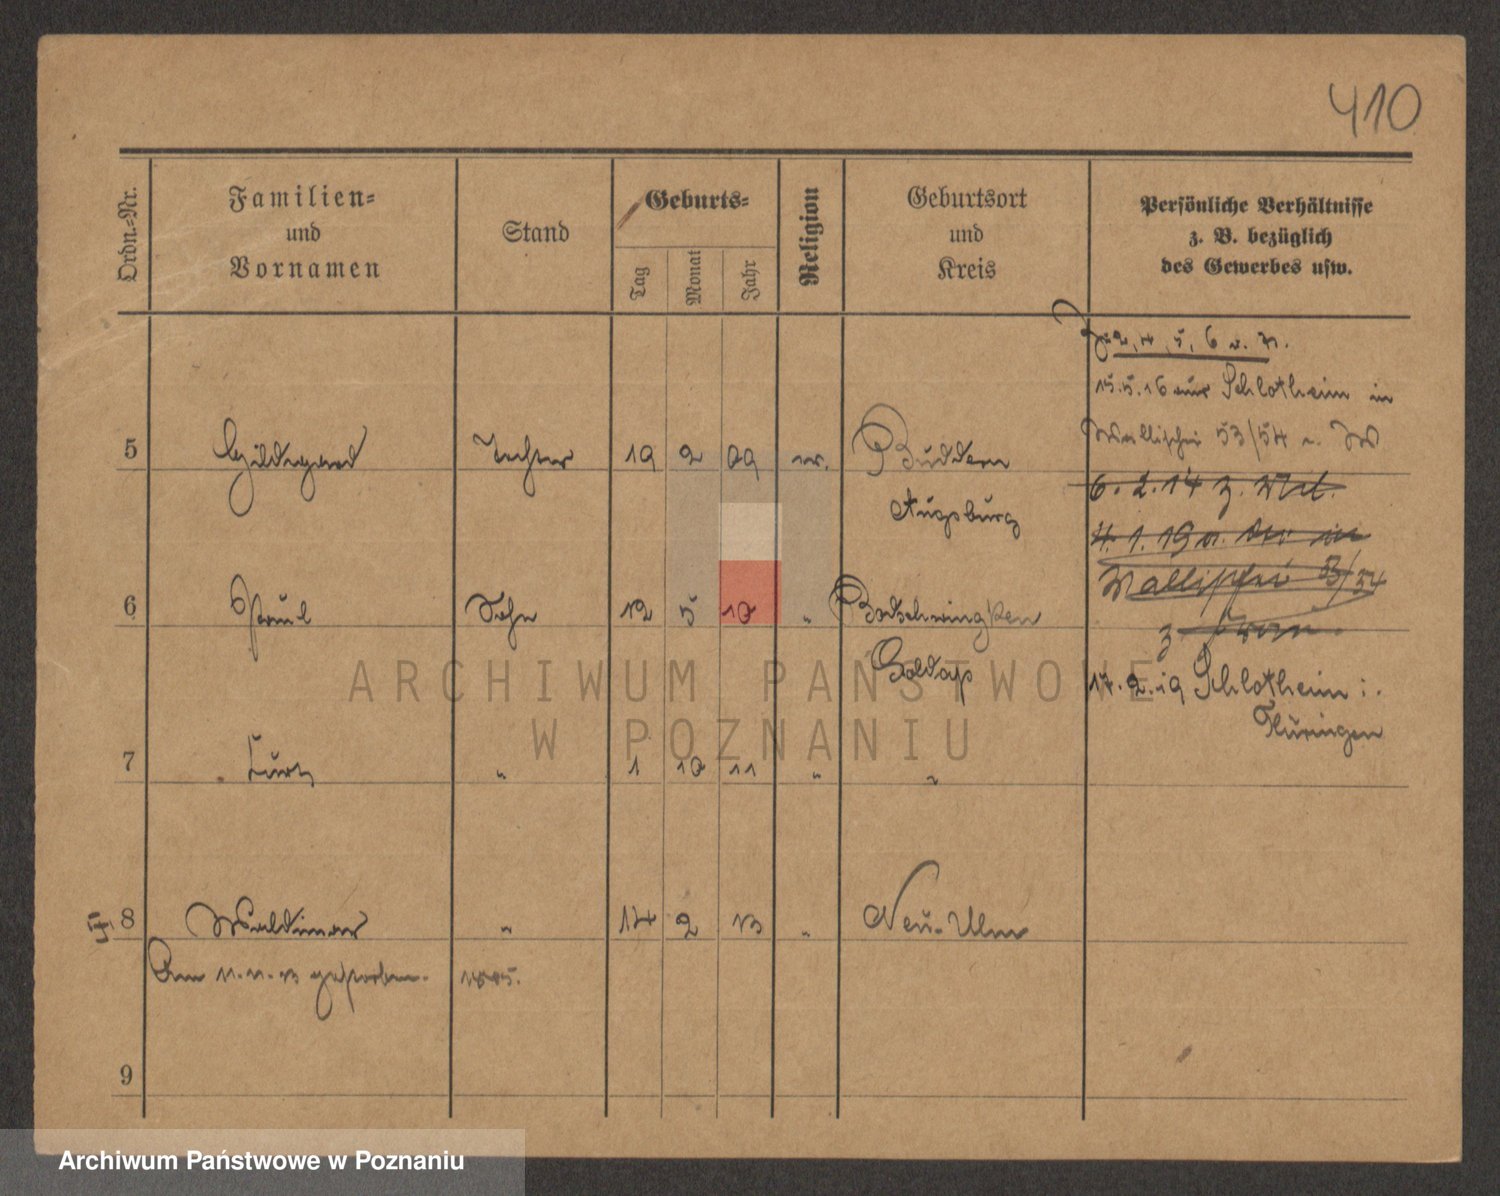 410
Ordn.-Nr.
Familien-
und
Vornamen
Stand
Geburts-
Tag
Monat
Jahr
Religion
Geburtsort
und
Kreis
Persönliche Verhältnisse
z. B. bezüglich
des Gewerbes usw.
Zu 2, 4, 5, 6 u. 7.
15.5.16 aus Schlotheim in
Wallischei 53/54 u. W
5 Hildegard Tochter 19 2 09 ev. Buddern
6. 2. 14 z. Mil.
Augsburg
4. 1. 19 in
Wallischei 53/54
6 Paul Sohn 12 5 10 " Bodschwingken
z
Goldap
17. 2. 19 Schlotheim i.
Thüringen
7 Kurt " 1 10 11 " "
8 Waldemar " 14 2 13 " Neu-Ulm
Am 11.11.13 gestorben.
9
ARCHIWUM PAŃSTWOWE
W POZNANIU
Archiwum Państwowe w Poznaniu